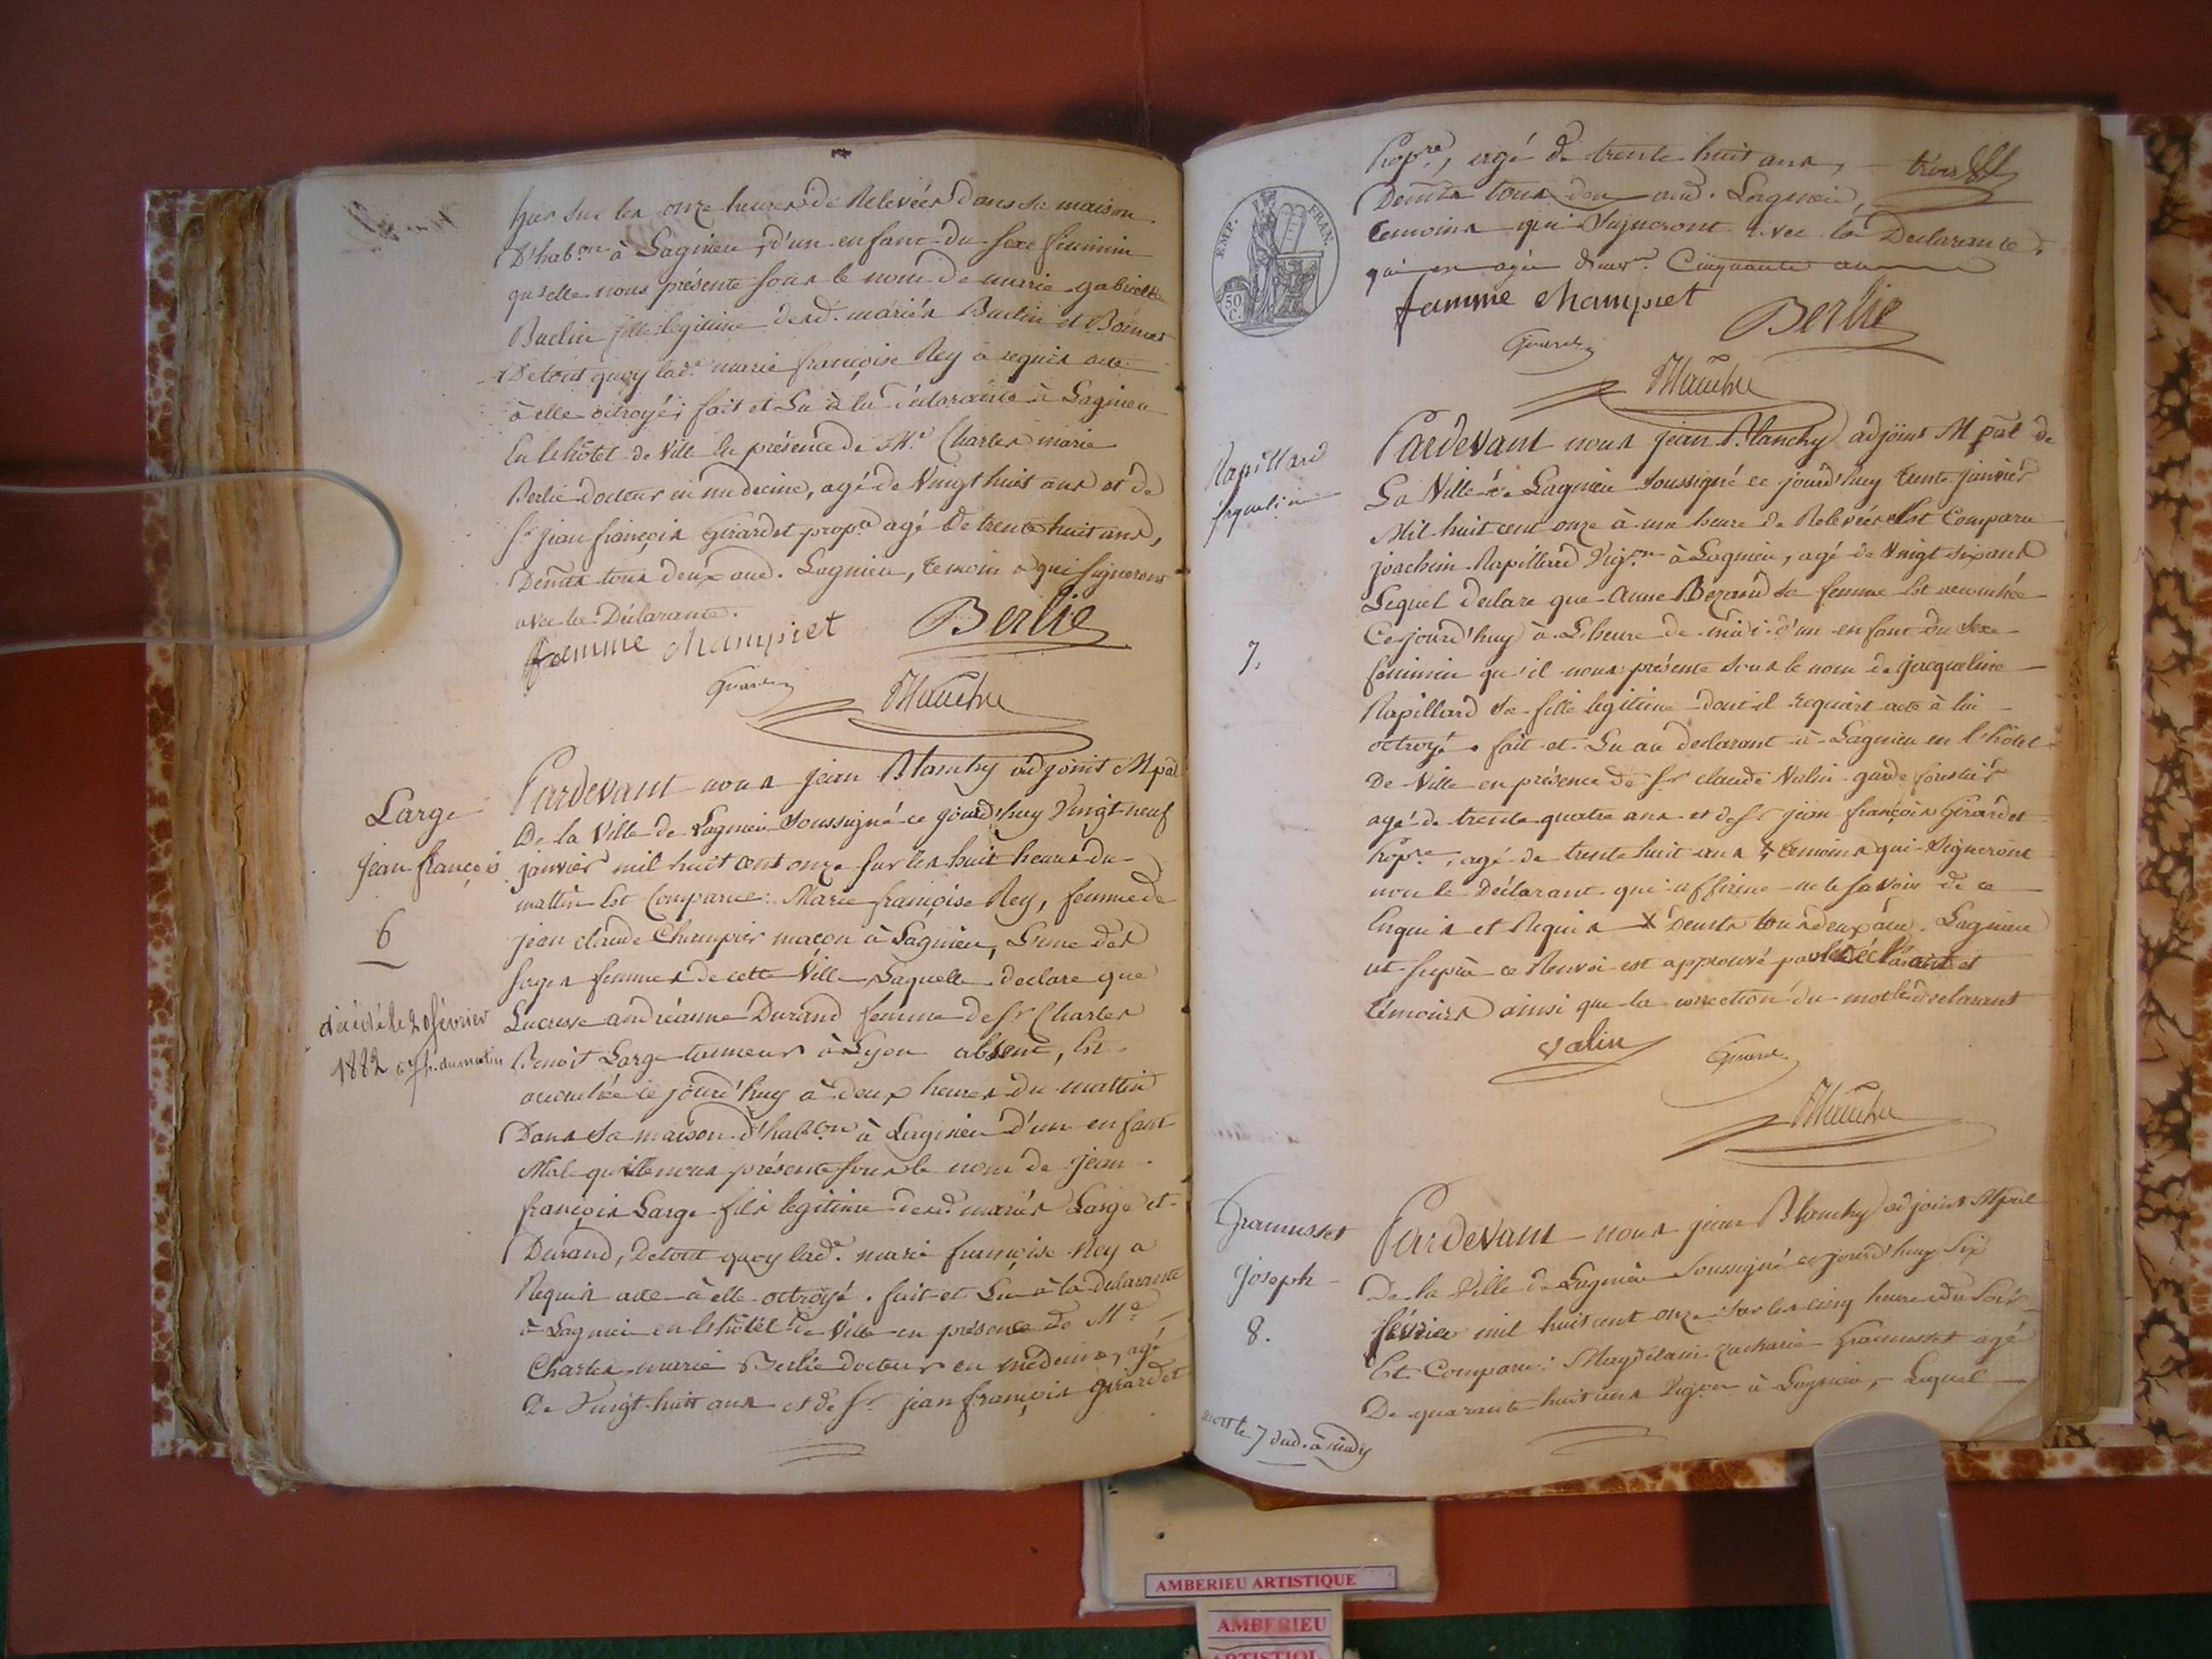 hier sur les onze heures de Relevées dans sa maison
D'habon à Lagnieu, d'un enfant du sexe féminin
qu'elle nous présente sous le nom de marie gabrielle
Buclin fille legitime desd. mariés Buclin et
De tout quoy lade marie françoise Rey a requis acte
à elle octroyé; fait et Lu à la déclarante à Lagnieu
En l'hôtel de Ville En présence de Me Charles marie
Berlie docteur en medecine, agé de Vingt huit ans et de
Sr jean françois Girardet propre agé de trente huit ans,
Demts tous deux aud. Lagnieu, temoins qui signeront
avec la Déclarante.
famme champiet Berlie
Girardet
Blanchy
Large
jean françois
6
décédé le 20 février
1882 à 7 h. du matin
Pardevant nous jean Blanchy adjoint Mpal
De la Ville de Lagnieu Soussigné ce jourd'huy Vingt neuf
janvier mil huit cent onze sur les huit heures du
mattin Est Comparue: Marie françoise Rey, femme de
jean claude Champier maçon à Lagnieu, L'une des
sages femmes de cette Ville, Laquelle declare que
Lucresse andréanne Durand femme de Sr Charles
Benoit Large tanneur à Lyon absent, Est
accouchée ce jourd'huy à deux heures du mattin
Dans sa maison d'habon à Lagnieu d'un enfant
Mal qu'elle nous présente sous le nom de jean
françois Large fils legitime desd. mariés Large et
Durand, De tout quoy lade marie françoise Rey a
Requis acte à elle octroyé. fait et Lu à la declarante
à Lagnieu en l'hôtel de Ville en présence de Me
Charles marie Berlie docteur en médecine, agé
De Vingt huit ans et de Sr jean françois girardet
EMP. FRAN.
50 C.
Propre, agé de trente huit ans,
Demts tous deux aud. Lagnieu,
temoins qui Signeront avec la Declarante,
qui est agée d'envon Cinquante ans
famme champiet Berlie
Girardet
Blanchy
Rapillard
jaqueline
7.
Pardevant nous jean Blanchy adjoint Mpal de
La Ville de Lagnieu Soussigné ce jourd'huy trente janvier
Mil huit cent onze à une heure de Relevées Est Comparu
joachim Rapillard Vigon à Lagnieu, agé de Vingt six ans
Lequel declare que Anne Bezard sa femme Est accouchée
Ce jourd'huy à L'heure de midi d'un enfant du Sexe
féminin qu'il nous présente sous le nom de jacqueline
Rapillard sa fille legitime dont il requiert acte à lui
octroyé. fait et Lu au declarant à Lagnieu en l'hôtel
De Ville en présence de Sr claude Valin garde forestier
agé de trente quatre ans et de Sr jean françois Girardet
propre, agé de trente huit ans X temoins qui Signeront
non le Déclarant qui affirme ne le savoir de ce
Enquis et Requis X Demts tous deux aud. Lagnieu
ut supra ce Renvoi est approuvé par le déclarant et
témoins ainsi que la correction du mot le declarant
valin Girardet
Blanchy
Gramusset
joseph
8.
mort le 7 dud. à midy
Pardevant nous jean Blanchy adjoint Mpal
De la Ville de Lagnieu Soussigné ce jourd'huy Six
février mil huit cent onze Sur les cinq heures du Soir
Est Comparu: Magdelain zacharie Gramusset agé
De quarante huit ans Vigon à Lagnieu, Lequel
AMBERIEU ARTISTIQUE
AMBERIEU
ARTISTIQ